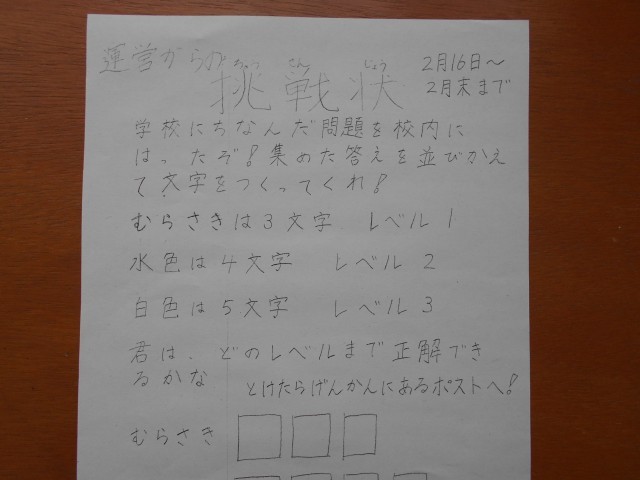 運営からの
ちょう せん じょう
挑戦状
2月16日～
2月末まで
学校にちなんだ問題を校内に
はったぞ!集めた答えを並びかえ
て文字をつくってくれ!
むらさきは3文字 レベル1
水色は4文字 レベル2
白色は5文字 レベル3
君は、どのレベルまで正解でき
るかな とけたらげんかんにあるポストへ!
むらさき